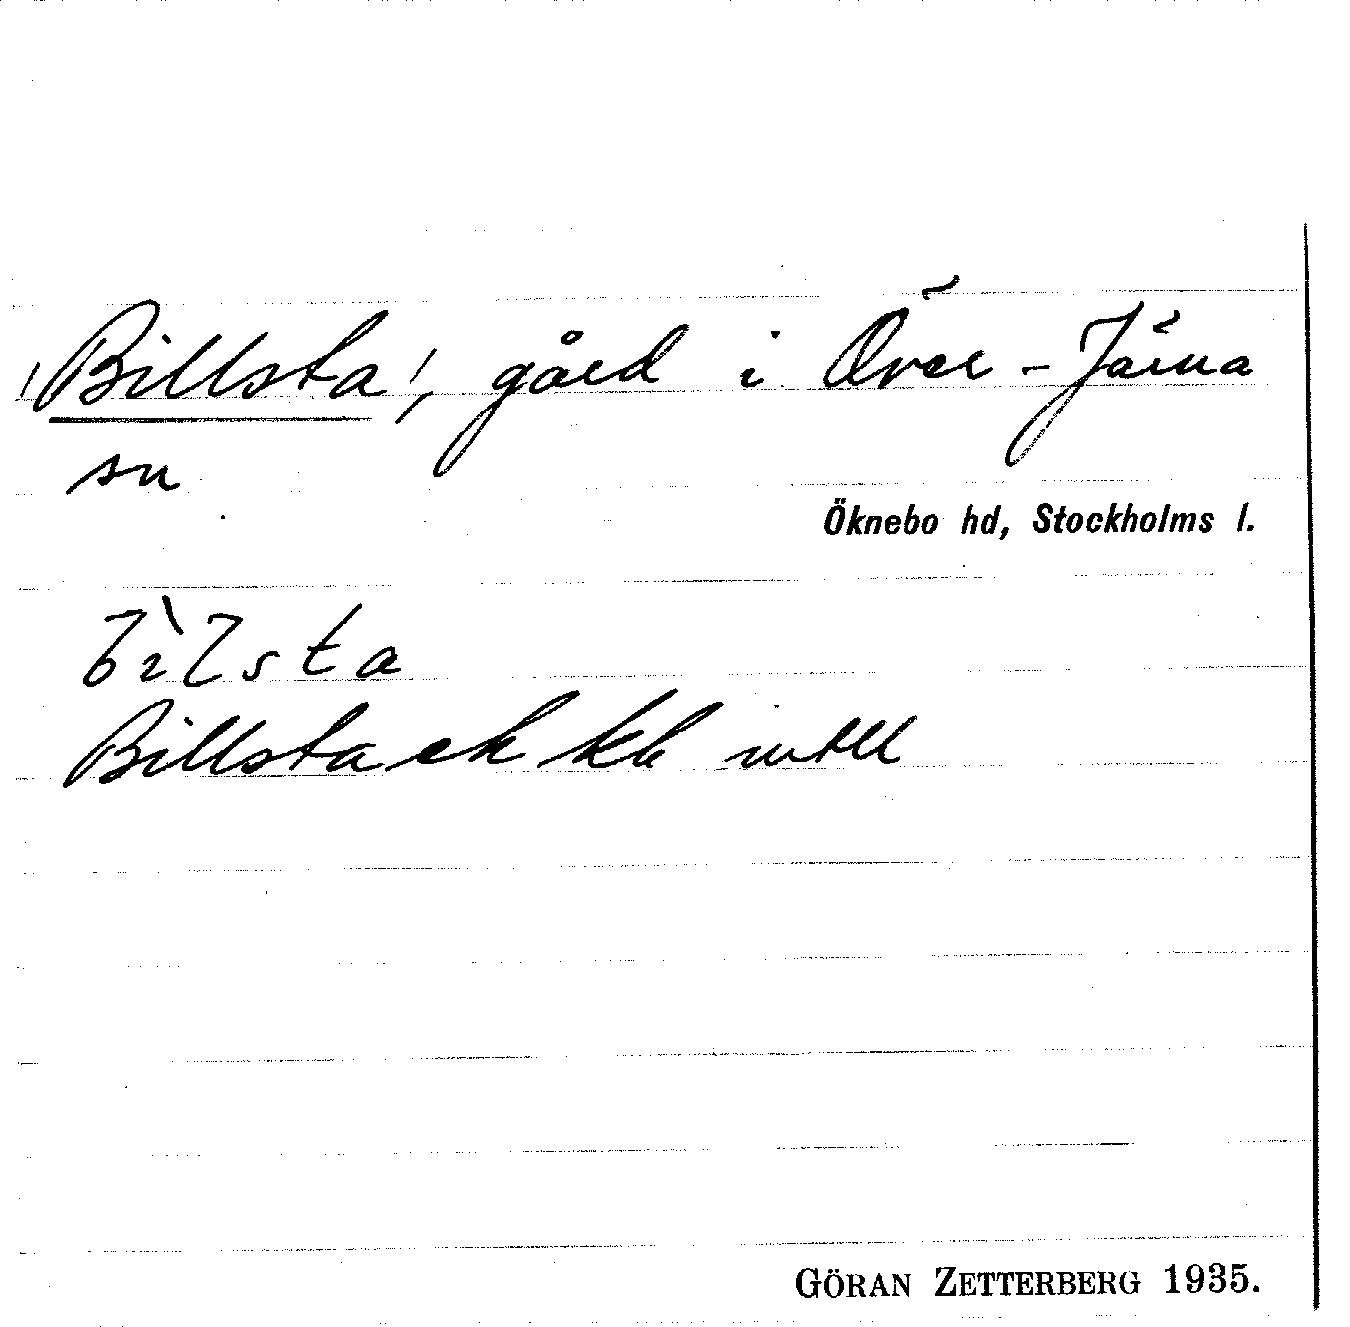 'Billsta', gård i Över-Järna
sn
Öknebo hd, Stockholms l.
bìlsta
Billsta ek kb
GÖRAN ZETTERBERG 1935.